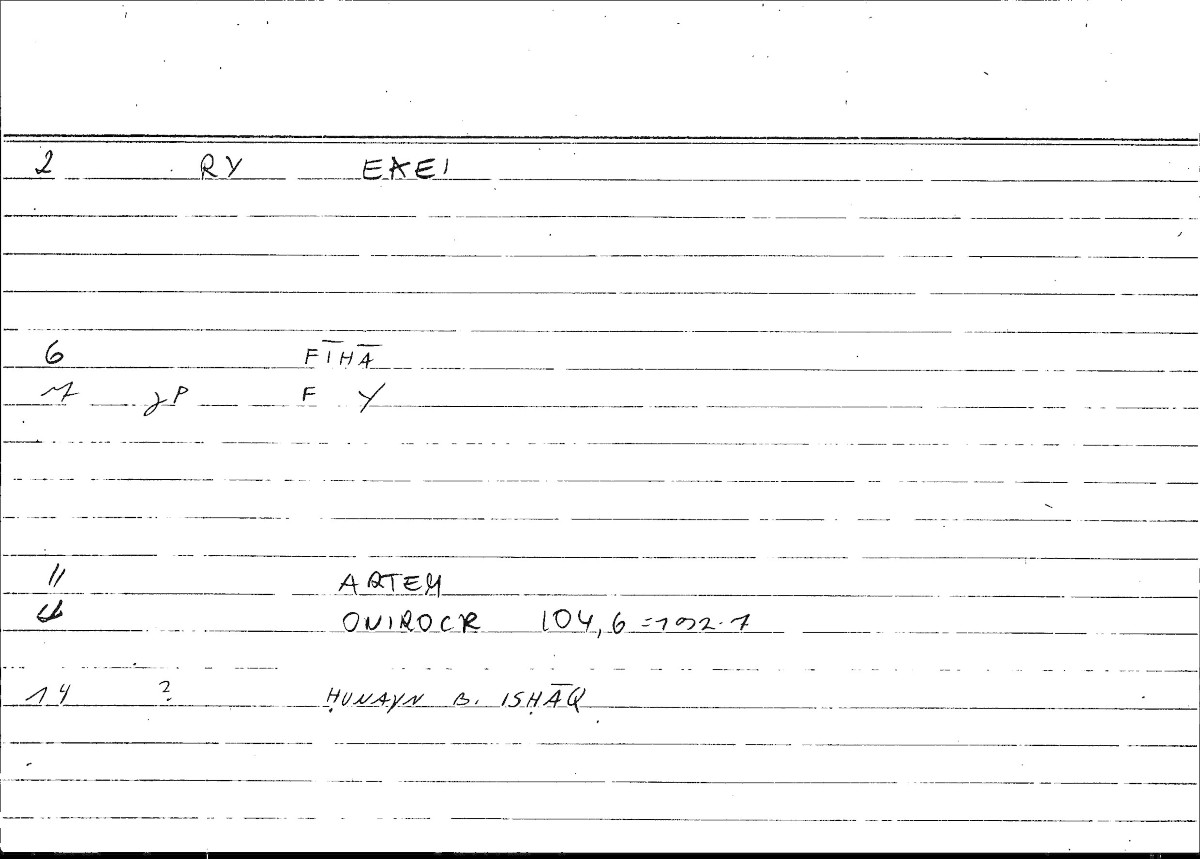 2 RY EKEI
6 FĪHĀ
7 gP F Y
11 ARTEM
ONIROCR 104,6 =192.7
14 ? ḤUNAYN B. ISḤĀQ